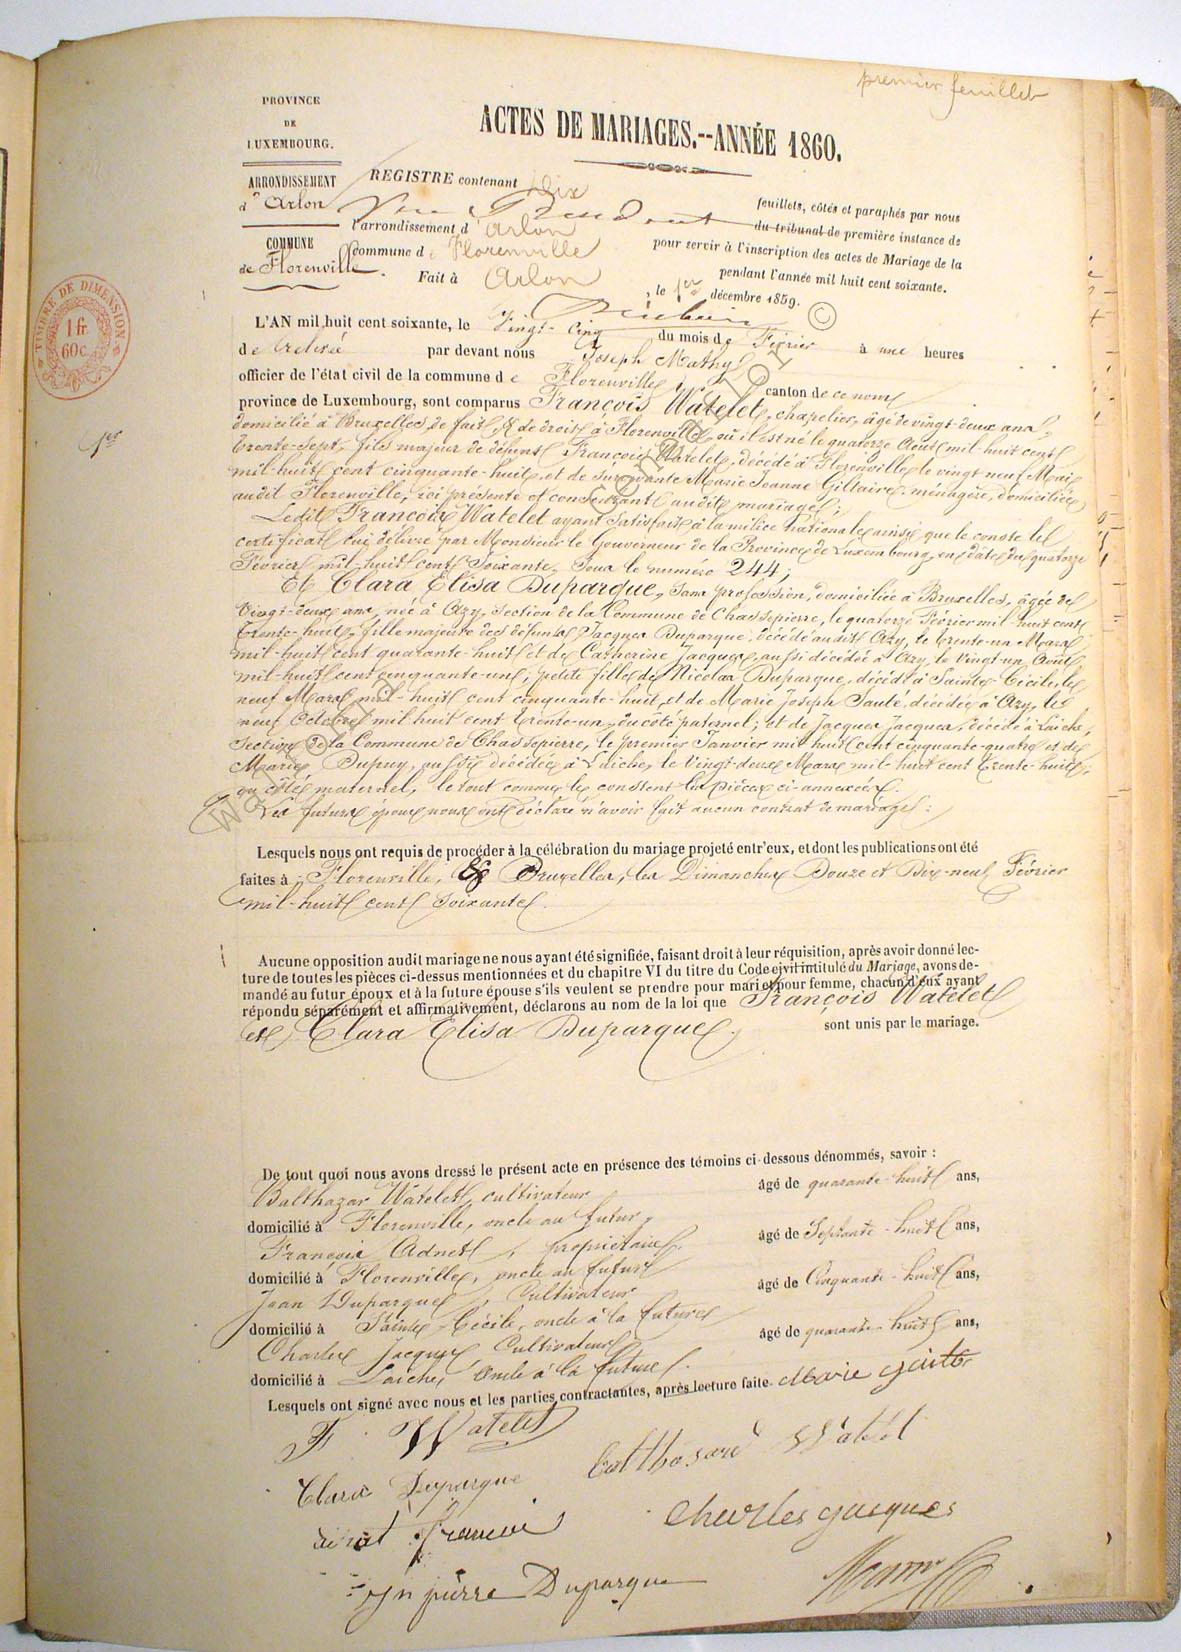 premier feuillet
PROVINCE
DE
LUXEMBOURG.
ACTES DE MARIAGES.--ANNÉE 1860.
ARRONDISSEMENT
d' Arlon
COMMUNE
de Florenville.
REGISTRE contenant Dix feuillets, côtés et paraphés par nous
du tribunal de première instance de
l'arrondissement d' Arlon pour servir à l'inscription des actes de Mariage de la
commune de Florenville pendant l'année mil huit cent soixante.
Fait à Arlon, le 1er décembre 1859.
TIMBRE DE DIMENSION
1 fr.
60 c.
1er
L'AN mil huit cent soixante, le Vingt-Cinq du mois de Février à une heures
de relevée par devant nous Joseph Mathy
officier de l'état civil de la commune de Florenville, canton de ce nom
province de Luxembourg, sont comparus François Watelet, chapelier, âgé de vingt-deux ans,
domicilié à Bruxelles de fait, & de droit à Florenville, où il est né le quatorze Août mil-huit cent
trente-sept, fils majeur de défunt François Watelet, décédé à Florenville le vingt neuf Mai
mil-huit cent cinquante-huit, et de survivante Marie Jeanne Giltaire, ménagère, domiciliée
audit Florenville, ici présente et consentant audit mariage;
Ledit François Watelet ayant satisfait à la milice nationale ainsi que le conste le
certificat lui délivré par Monsieur le Gouverneur de la Province de Luxembourg, en date du quatorze
Février mil-huit cent soixante, sous le numéro 244;
Et Clara Elisa Duparque, sans profession, domiciliée à Bruxelles, âgée de
vingt-deux ans, née à Azy, section de la Commune de Chassepierre, le quatorze Février mil-huit cent
trente-huit, fille majeure des défunts Jacques Duparque, décédé audit Azy, le trente-un Mars
mil-huit cent quarante-huit et de Catherine Jacques, aussi décédée à Azy, le vingt-un Août
mil-huit cent cinquante-un; petite fille de Nicolas Duparque, décédé à Sainte-Cécile, le
neuf Mars mil-huit cent cinquante-huit, et de Marie Joseph Sauté, décédée à Azy, le
neuf Octobre mil huit cent trente-un, du côté paternel; et de Jacques Jacques, décédé à Laiche,
section de la Commune de Chassepierre, le premier Janvier mil huit cent cinquante-quatre et de
Marie Dupuy, aussi décédée à Laiche, le vingt-deux Mars mil-huit cent trente-huit,
du côté maternel, le tout comme le constent les pièces ci-annexées.
Les futurs époux nous ont déclaré n'avoir fait aucun contrat de mariage:
Lesquels nous ont requis de procéder à la célébration du mariage projeté entr'eux, et dont les publications ont été
faites à Florenville, & Bruxelles, les Dimanches Douze et Dix-neuf Février
mil-huit cent soixante.
Aucune opposition audit mariage ne nous ayant été signifiée, faisant droit à leur réquisition, après avoir donné lec-
ture de toutes les pièces ci-dessus mentionnées et du chapitre VI du titre du Code civil intitulé du Mariage, avons de-
mandé au futur époux et à la future épouse s'ils veulent se prendre pour mari et pour femme, chacun d'eux ayant
répondu séparément et affirmativement, déclarons au nom de la loi que François Watelet
et Clara Elisa Duparque. sont unis par le mariage.
De tout quoi nous avons dressé le présent acte en présence des témoins ci-dessous dénommés, savoir :
Balthazar Watelet, cultivateur âgé de quarante-huit ans,
domicilié à Florenville, oncle au futur,
François Adnet, propriétaire, âgé de Septante-huit ans,
domicilié à Florenville, oncle au futur
Jean Duparque, Cultivateur âgé de Cinquante-huit ans,
domicilié à Sainte-Cécile, oncle à la future
Charles Jacques, Cultivateur âgé de quarante-huit ans,
domicilié à Laiche, oncle à la future.
Lesquels ont signé avec nous et les parties contractantes, après lecture faite. Marie
F. Watelet
Balthasard Watelet
Clara Duparque
Charles Jacques
adnet François
Jn pierre Duparque